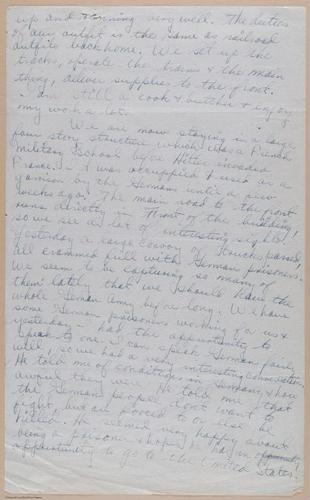 up and running very well. The duties
of our outfit is the same as railroad
outfits back home. We set up the
tracks, operate the trains & the main
thing, deliver supplies to the front.
I am still a cook & butcher & enjoy
my work a lot.
We are now staying in a large
four story structure which was a French
Military School before Hitler invaded
France. It was occupied & used as a
garrison by the Germans until a few
weeks ago. The main road to the front
runs directly in front of the building
so we see a lot of interesting sights.
Yesterday a large convoy of trucks passed,
all crammed full with German prisoners.
We seem to be capturing so many of
them lately that we should have the
whole German Army before long. We have
some German prisoners working for us &
yesterday I had the opportunity to
speak to one. I can speak German fairly
well, so we had a very interesting conversation.
He told me of conditions in Germany & how
awful they were. He told me that
the German people don't want to
fight, but are forced to or else be
killed. He seemed very happy about
being a prisoner & hopes he has an
opportunity to go to the United States.